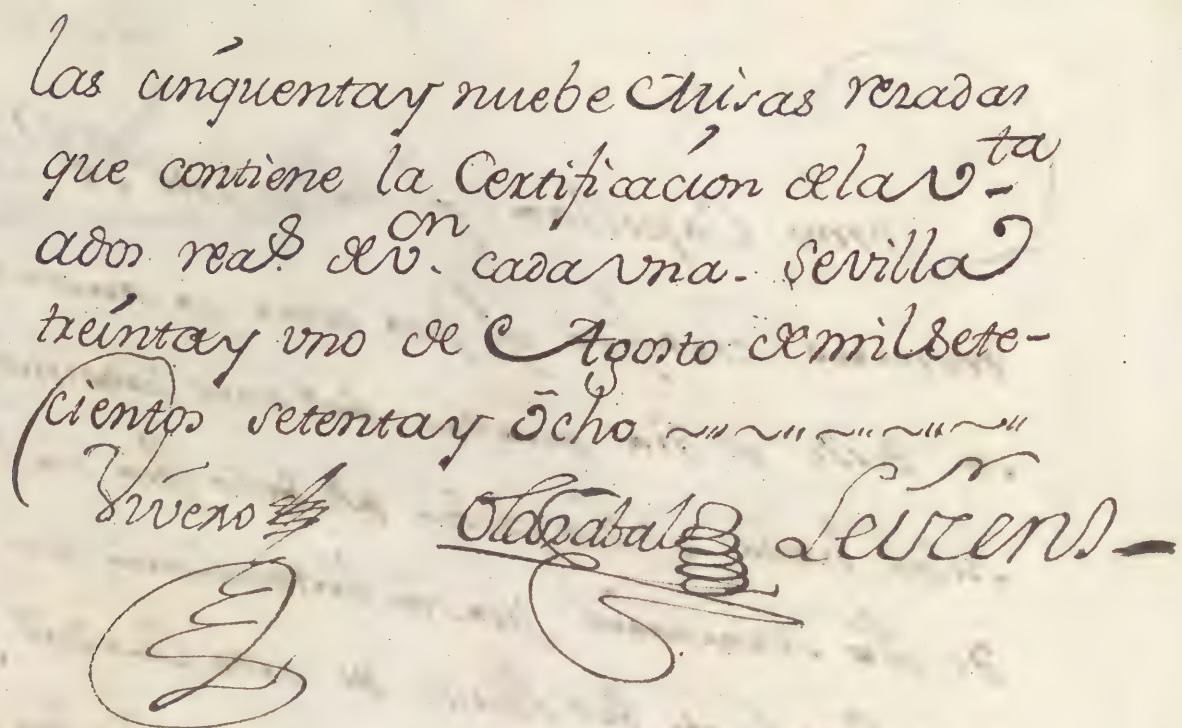 las cinquenta y nuebe Misas rezadas
que contiene la Certificacion de la vta
a dos reas. de von. cada una. Sevilla
treinta y uno de Agosto de mil sete-
cientos setenta y ocho
Vivero Olazabal Leirens